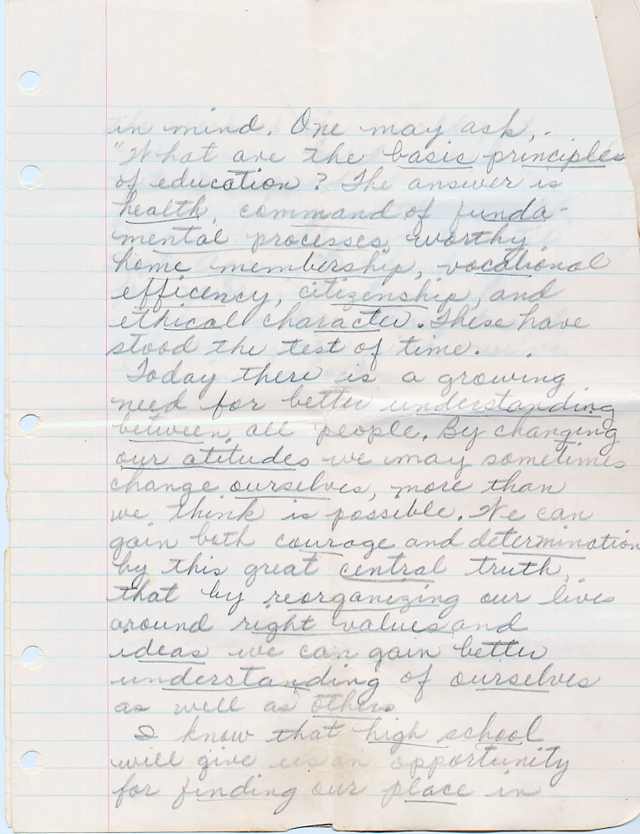 in mind. One may ask,-
"What are the basis principles
of education? The answer is
health, command of funda-
mental processes, worthy
home membership, vocational
efficency, citizenship, and
ethical character. These have
stood the test of time.
Today there is a growing
need for better understanding
between all people. By changing
our atitudes we may sometimes
change ourselves, more than
we think is possible. We can
gain both courage and determination
by this great central truth,
that by reorganizing our lives
around right values and
ideas we can gain better
understanding of ourselves
as well as others.
I know that high school
will give us an opportunity
for finding our place in